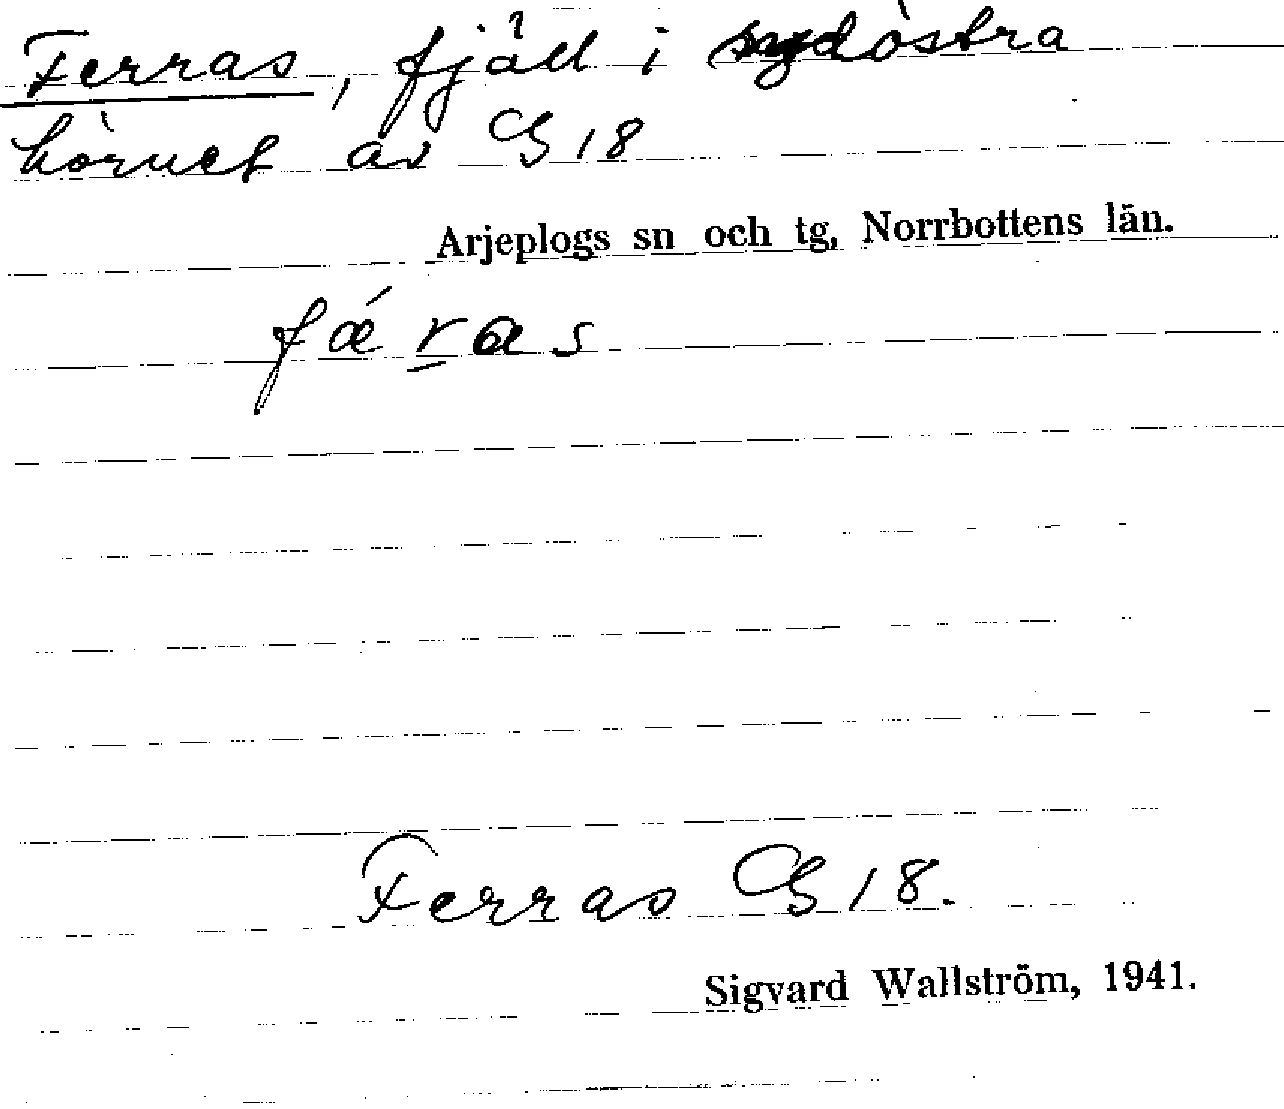 Ferras, fjäll i sydöstra
hörnet av G 18
Arjeplogs sn och tg, Norrbottens län.
fǽr̲as
Ferras G 18.
Sigvard Wallström, 1941.